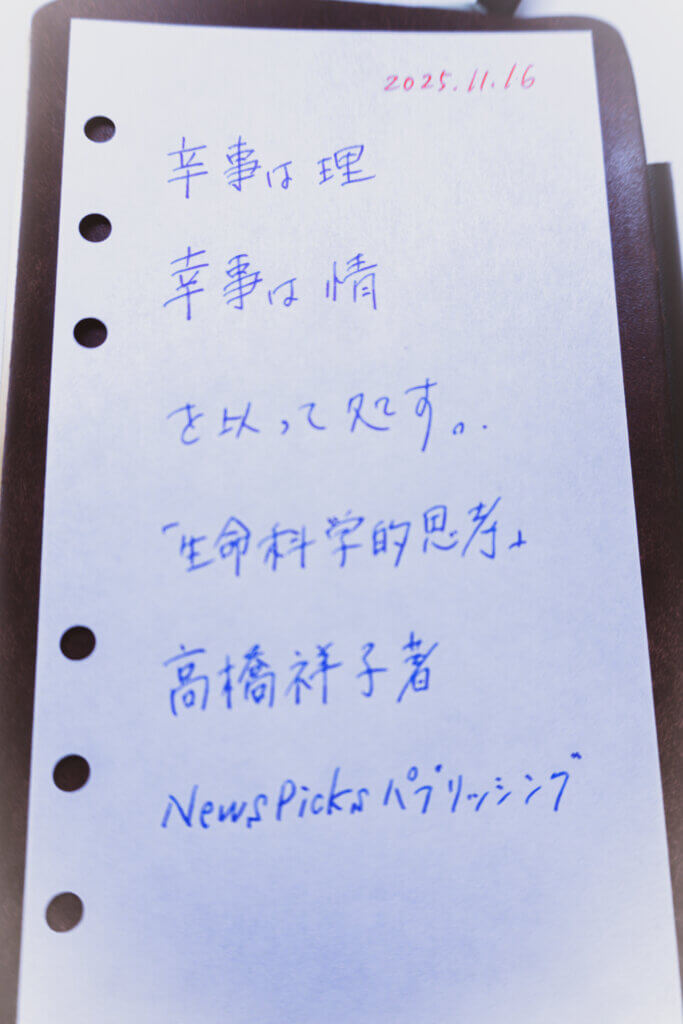 2025.11.16
辛事は理
幸事は情
を以って処す。
「生命科学的思考」
高橋祥子著
NewsPicksパブリッシング